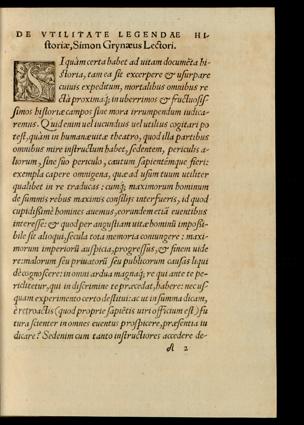 DE VTILITATE LEGENDAE HI-
storiæ, Simon Grynæus Lectori.
SI quàm certa habet ad uitam documẽta hi-
storia, tam ea sit excerpere & usurpare
cuiuis expeditum, mortalibus omnibus re
ctà proximaq́; in uberrimos & fructuosis-
simos historiæ campos siue mora irrumpendum indica-
remus. Quid enim uel iucundius uel utilius cogitari po
test, quàm in humanæ uitæ theatro, quod illa partibus
omnibus mire instructum habet, sedentem, periculis a-
liorum, sine suo periculo, cautum sapientémque fieri:
exempla capere omnigena, quæ ad usum tuum utiliter
qualibet in re traducas: cumq́; maximorum hominum
de summis rebus maximis consilijs interfueris, id quod
cupidissimè homines auemus, eorundem etiã euentibus
interesse: & quod per angustiam uitæ homini impossi-
bile sit alioqui, secula tota memoria coniungere: maxi-
morum imperiorũ auspicia, progressus, & finem uide
re: malorum seu priuatorũ seu publicorum causas liqui
dè cognoscere: in omni ardua magnaq́; re qui ante te pe-
riclitetur, qui in discrimine te præcedat, habere: nec us-
quam experimento certo destitui: ac ut in summa dicam,
è retroactis (quod proprie sapiẽtis uiri officium est) fu
tura scienter in omnes euentus prospicere, præsentia iu
dicare? Sed enim cum tanto instructiores accedere de-
A 2